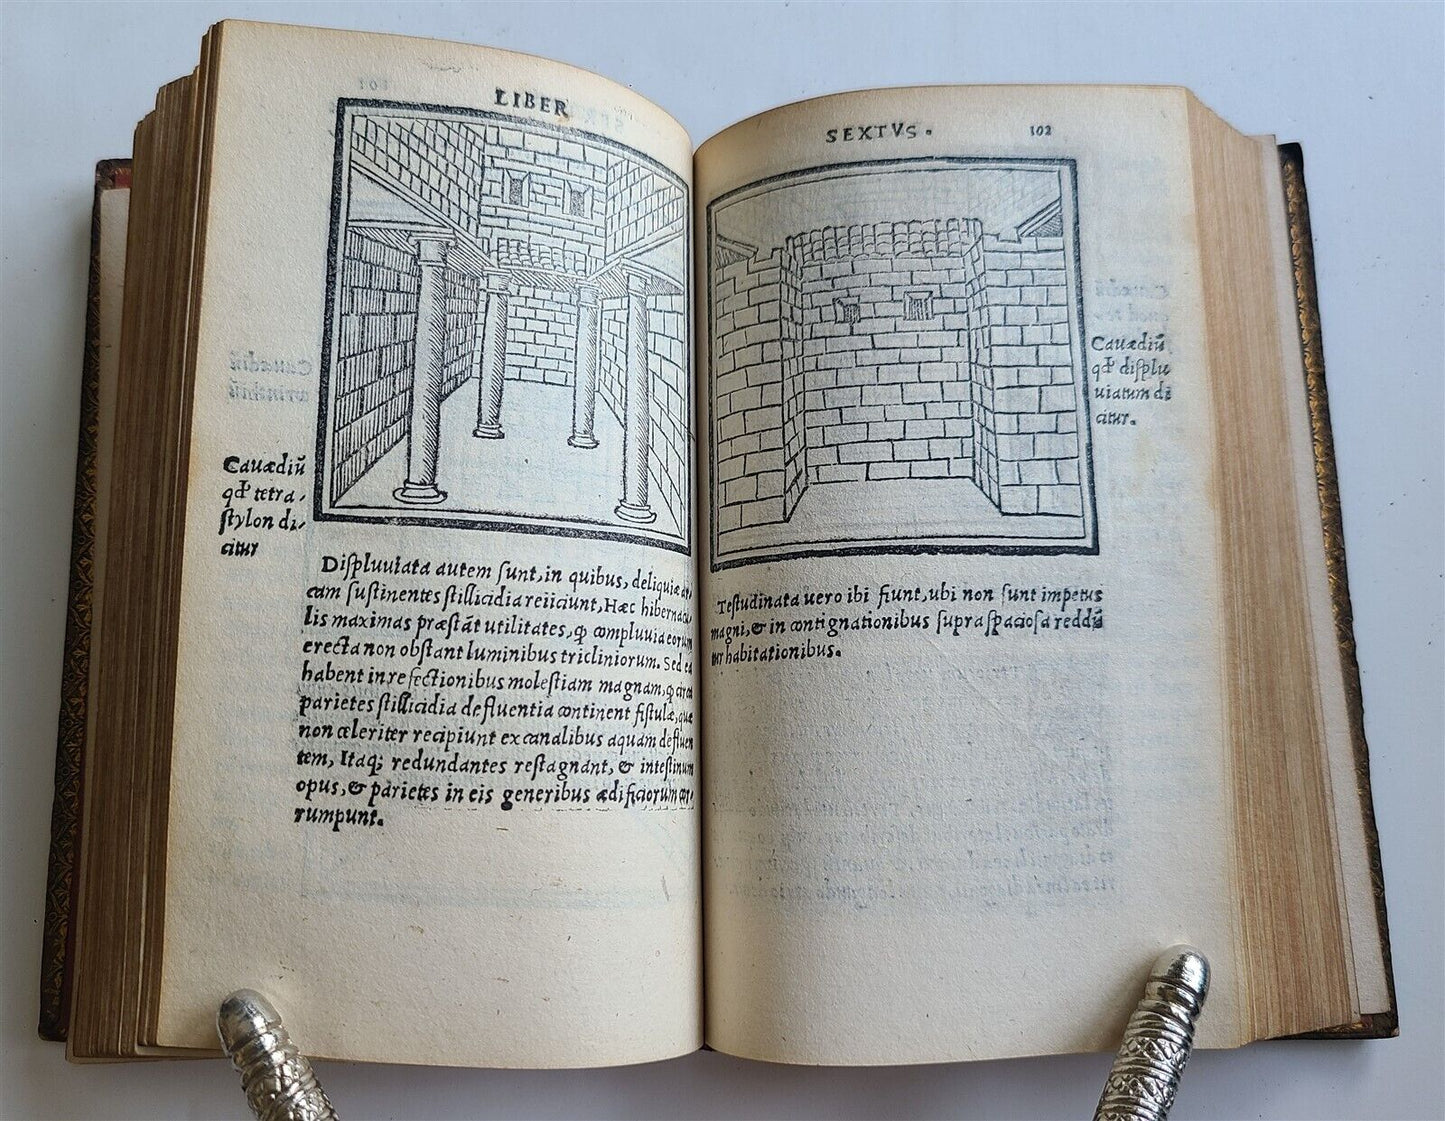 LIBER
Cauædiũ
qd̃ tetra,
ſtylon di,
citur
Diſpluuiata autem ſunt, in quibus, deliquiæ ar,
cam ſuſtinentes ſtillicidia reiiciunt, Hæc hibernacu
lis maximas præſtãt utilitates, ꝙ compluuia eorum
erecta non obſtant luminibus tricliniorum. Sed ea
habent in refectionibus moleſtiam magnam, ꝙ circa
parietes ſtillicidia defluentia continent fiſtulæ, quæ
non celeriter recipiunt ex canalibus aquam defluen
tem, Itaq; redundantes reſtagnant, & inteſtinum
opus, & parietes in eis generibus ædificiorum cor,
rumpunt.
SEXTVS. 102
Cauædiũ
qd̃ diſplu
uiatum di
citur.
Teſtudinata uero ibi fiunt, ubi non ſunt impetus
magni, & in contignationibus ſupra ſpacioſa reddũ
tur habitationibus.